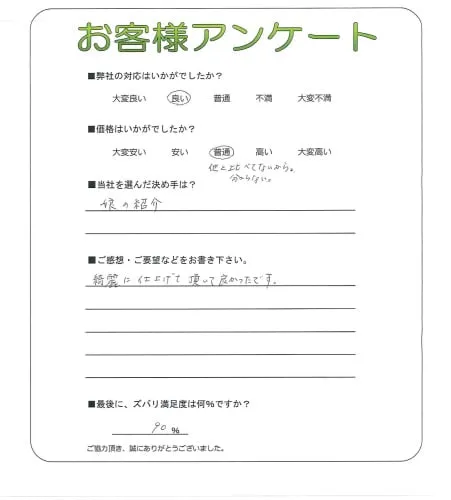 お客様アンケート
■弊社の対応はいかがでしたか？
大変良い 良い 普通 不満 大変不満
■価格はいかがでしたか？
大変安い 安い 普通 高い 大変高い
他と比べてないから。
分からない。
■当社を選んだ決め手は？
娘の紹介
■ご感想・ご要望などをお書き下さい。
綺麗に仕上げて頂いて良かったです。
■最後に、ズバリ満足度は何％ですか？
90 %
ご協力頂き、誠にありがとうございました。